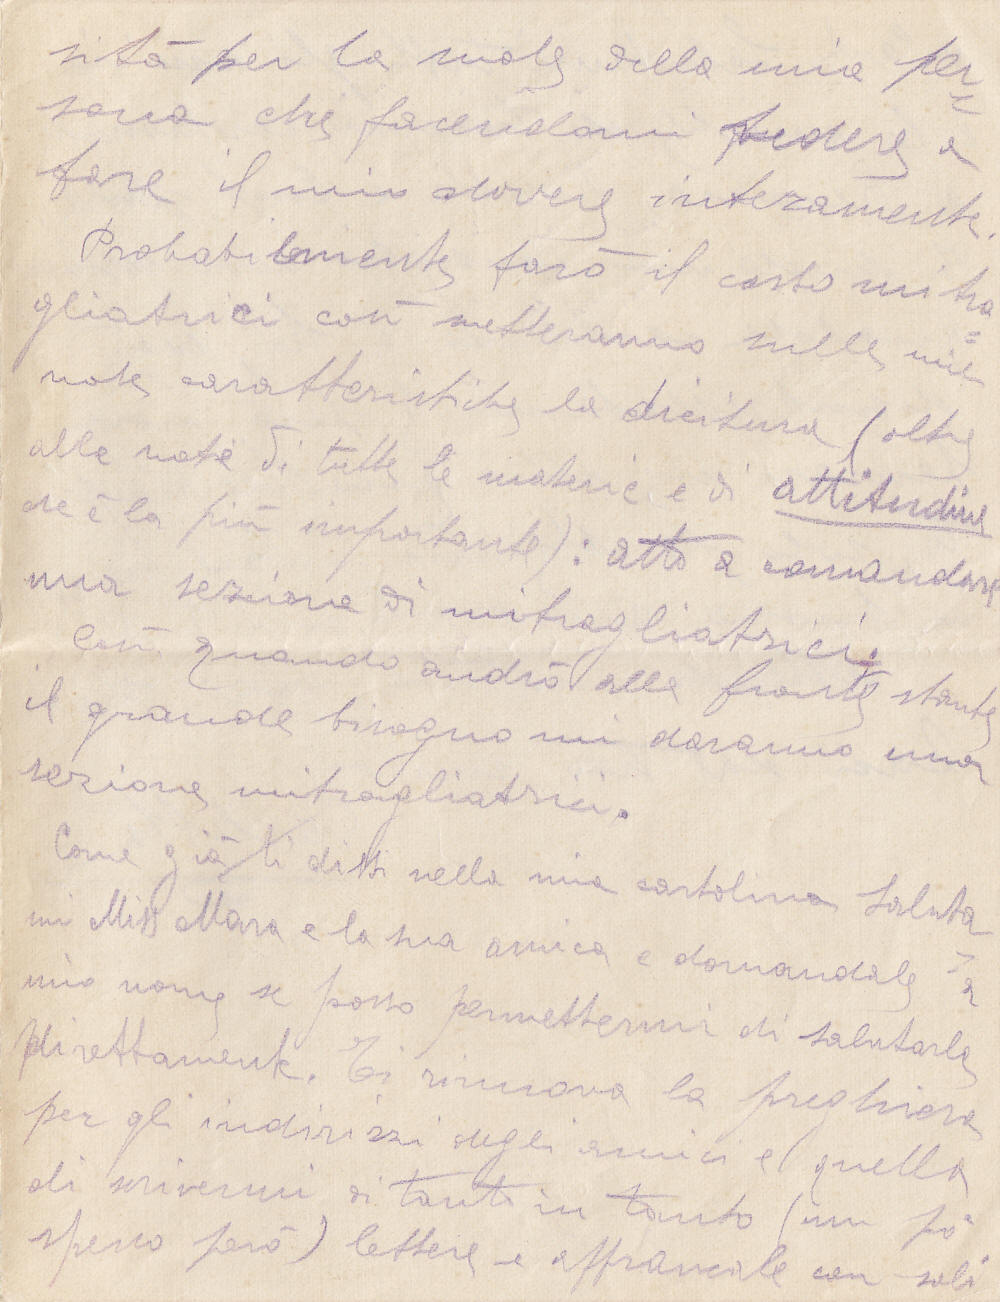 sità per la mole della mia per
sona che facendomi vedere a
fare il mio dovere interamente.
Probabilmente farò il corso mitra
gliatrici così metteranno sulle mie
note caratteristiche la dicitura (oltre
alle note di tutte le materie e di attitudine
che è la più importante): atto a comandare
una sezione di mitragliatrici.
Così quando andrò alla fronte stante
il grande bisogno mi daranno una
sezione mitragliatrici.
Come già ti dissi nella mia cartolina saluta
mi Miss Mara e la sua amica e domandale a
mio nome se posso permettermi di salutarle
direttamente. Ti rinnova la preghiera
per gli indirizzi degli amici e quella
di scrivermi di tanto in tanto (un pò
spesso però) lettere e affrancale con soli